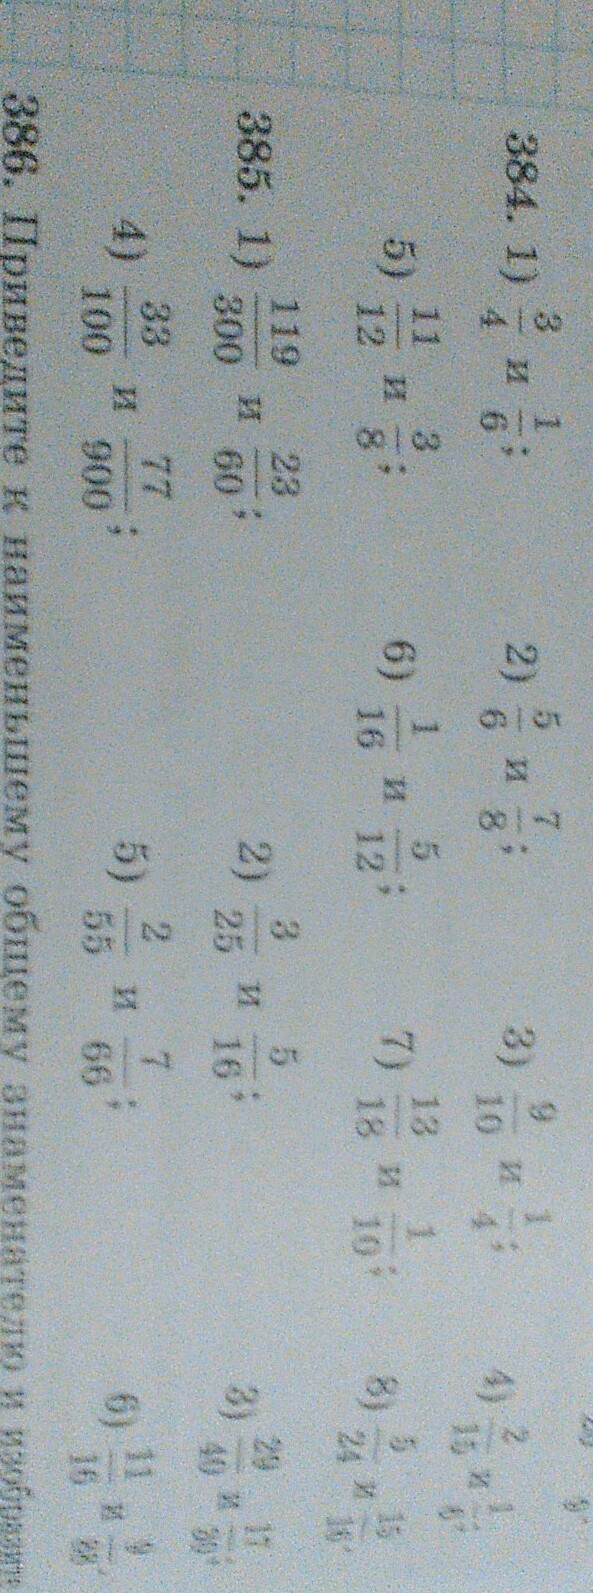 384. 1) 3/4 и 1/6; 2) 5/6 и 7/8; 3) 9/10 и 1/4; 4) 2/15 и 1/6;
5) 11/12 и 3/8; 6) 1/16 и 5/12; 7) 13/18 и 1/10; 8) 5/24 и
385. 1) 119/300 и 23/60; 2) 3/25 и 5/16; 3) 29/40 и
4) 33/100 и 77/900; 5) 2/55 и 7/66; 6) 11/16 и
386. Приведите к наименьшему общему знаменателю и